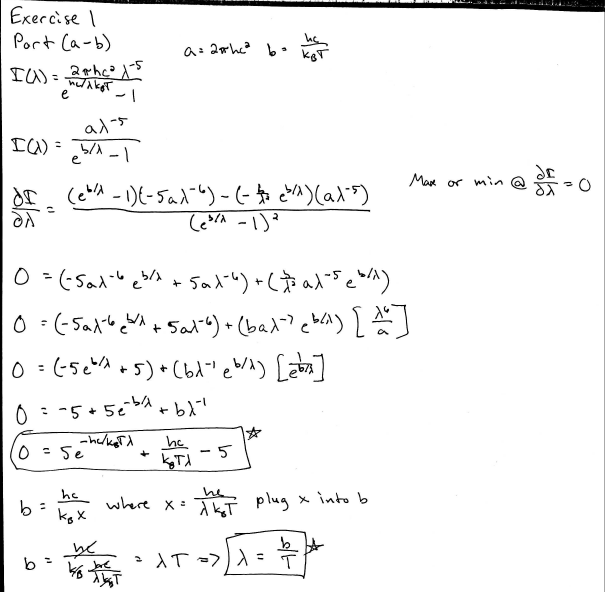 Exercise 1
Part (a-b)
a = 2πhc² b = hc/k_BT
I(λ) = 2πhc² λ⁻⁵ / (e^(hc/λk_BT) - 1)
I(λ) = aλ⁻⁵ / (e^(b/λ) - 1)
∂I/∂λ = ((e^(b/λ) - 1)(-5aλ⁻⁶) - (-b/λ² e^(b/λ))(aλ⁻⁵)) / (e^(b/λ) - 1)²
Max or min @ ∂I/∂λ = 0
0 = (-5aλ⁻⁶ e^(b/λ) + 5aλ⁻⁶) + (b/λ² aλ⁻⁵ e^(b/λ))
0 = (-5aλ⁻⁶ e^(b/λ) + 5aλ⁻⁶) + (baλ⁻⁷ e^(b/λ)) [λ⁶/a]
0 = (-5e^(b/λ) + 5) + (bλ⁻¹ e^(b/λ)) [1/e^(b/λ)]
0 = -5 + 5e^(-b/λ) + bλ⁻¹
0 = 5e^(-hc/k_BTλ) + hc/k_BTλ - 5 ☆
b = hc/k_Bx where x = hc/λk_BT plug x into b
b = hc/(k_B hc/λk_BT) = λT => λ = b/T ☆